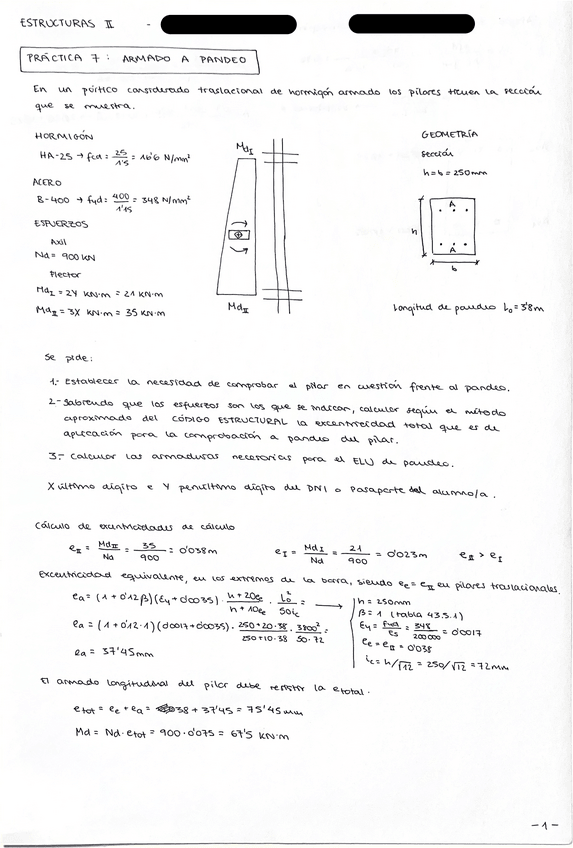 ESTRUCTURAS II -
PRÁCTICA 7: ARMADO A PANDEO
En un pórtico considerado traslacional de hormigón armado los pilares tienen la sección
que se muestra.
HORMIGÓN
HA-25 → fcd = 25/1'5 = 16'6 N/mm²
ACERO
B-400 → fyd = 400/1'15 = 348 N/mm²
ESFUERZOS
Axil
Nd = 900 KN
Flector
Md_I = 2Y KN·m = 21 KN·m
Md_II = 3X KN·m = 35 KN·m
Md_I
Md_II
GEOMETRÍA
Sección
h = b = 250mm
A
h
A
b
Longitud de pandeo L₀ = 3'8m
Se pide:
1.- Establecer la necesidad de comprobar el pilar en cuestión frente al pandeo.
2.- Sabiendo que los esfuerzos son los que se marcan, calcular según el método
aproximado del CÓDIGO ESTRUCTURAL la excentricidad total que es de
aplicación para la comprobación a pandeo del pilar.
3.- Calcular las armaduras necesarias para el ELU de pandeo.
X último dígito e Y penúltimo dígito del DNI o Pasaporte del alumno/a.
Cálculo de excentricidades de cálculo
e_II = Md_II/Nd = 35/900 = 0'038m e_I = Md_I/Nd = 21/900 = 0'023m e_II > e_I
Excentricidad equivalente, en los extremos de la barra, siendo e_e = e_II en pilares traslacionales.
e_a = (1 + 0'12β)(ε_y + 0'0035) · (h + 20e_e)/(h + 10e_e) · L₀²/50i_c →
e_a = (1 + 0'12·1)(0'0017 + 0'0035) · (250 + 20·38)/(250 + 10·38) · 3800²/(50·72) =
e_a = 37'45mm
h = 250mm
β = 1 (tabla 43.5.1)
ε_y = fyd/Es = 348/200000 = 0'0017
e_e = e_II = 0'038
i_c = h/√12 = 250/√12 = 72mm
El armado longitudinal del pilar debe resistir la e_total.
e_tot = e_e + e_a = 38 + 37'45 = 75'45mm
Md = Nd · e_tot = 900 · 0'075 = 67'5 KN·m
-1-